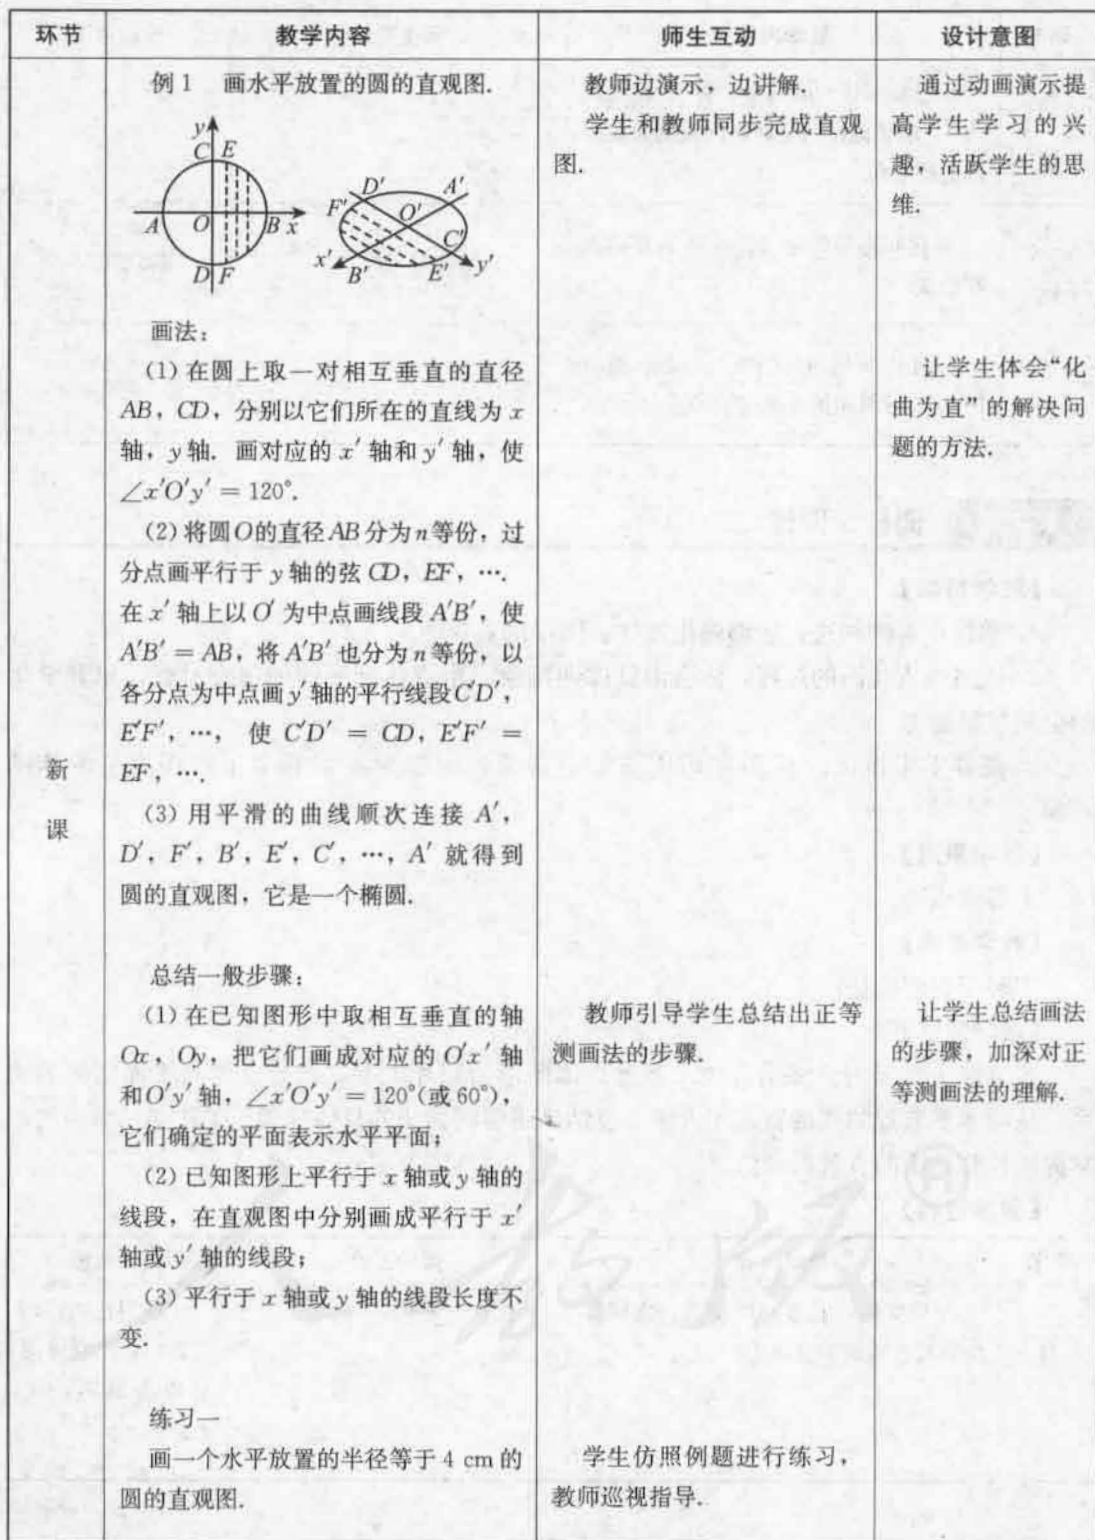 环节 教学内容 师生互动 设计意图
例 1 画水平放置的圆的直观图.
y
C E
A O B x
D F
D′ A′
F′ O′
C′
x′ B′ E′ y′
画法:
(1) 在圆上取一对相互垂直的直径
AB, CD, 分别以它们所在的直线为 x
轴, y 轴. 画对应的 x′ 轴和 y′ 轴, 使
∠x′O′y′ = 120°.
(2) 将圆O的直径AB分为n等份, 过
分点画平行于 y 轴的弦 CD, EF, ….
在 x′ 轴上以 O′ 为中点画线段 A′B′, 使
A′B′ = AB, 将 A′B′ 也分为 n 等份, 以
各分点为中点画 y′ 轴的平行线段C′D′,
E′F′, …, 使 C′D′ = CD, E′F′ =
EF, ….
(3) 用平滑的曲线顺次连接 A′,
D′, F′, B′, E′, C′, …, A′ 就得到
圆的直观图, 它是一个椭圆.
总结一般步骤:
(1) 在已知图形中取相互垂直的轴
Ox, Oy, 把它们画成对应的 O′x′ 轴
和O′y′ 轴, ∠x′O′y′ = 120°(或 60°),
它们确定的平面表示水平平面;
(2) 已知图形上平行于 x 轴或 y 轴的
线段, 在直观图中分别画成平行于 x′
轴或 y′ 轴的线段;
(3) 平行于 x 轴或 y 轴的线段长度不
变.
练习一
画一个水平放置的半径等于 4 cm 的
圆的直观图.
教师边演示, 边讲解.
学生和教师同步完成直观
图.
教师引导学生总结出正等
测画法的步骤.
学生仿照例题进行练习,
教师巡视指导.
通过动画演示提
高学生学习的兴
趣, 活跃学生的思
维.
让学生体会“化
曲为直”的解决问
题的方法.
让学生总结画法
的步骤, 加深对正
等测画法的理解.
新
课